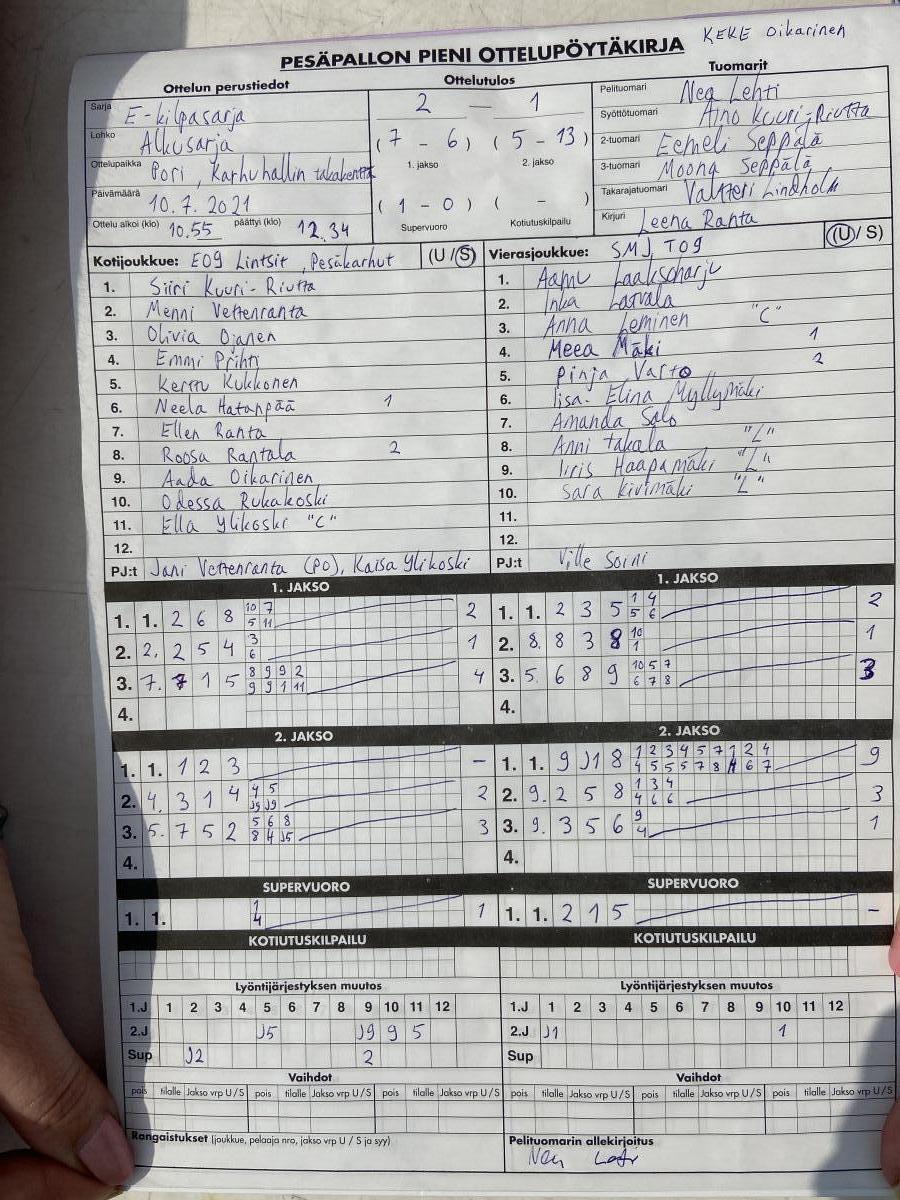 KEKE Oikarinen
PESÄPALLON PIENI OTTELUPÖYTÄKIRJA
Ottelun perustiedot
Sarja E-kilpasarja
Lohko Alkusarja
Ottelupaikka Pori, Karhuhallin takakenttä
Päivämäärä 10.7.2021
Ottelu alkoi (klo) 10.55 päättyi (klo) 12.34
Ottelutulos
2 — 1
(7 - 6) (5 - 13)
1. jakso 2. jakso
(1 - 0) ( - )
Supervuoro Kotiutuskilpailu
Tuomarit
Pelituomari Nea Lehti
Syöttötuomari Aino Kuuri-Riutta
2-tuomari Eemeli Seppälä
3-tuomari Moona Seppälä
Takarajatuomari Valtteri Lindholm
Kirjuri Leena Ranta
Kotijoukkue: E09 Lintsit, Pesäkarhut (U/S)
1. Siiri Kuuri-Riutta
2. Menni Vettenranta
3. Olivia Ojanen
4. Emmi Prihti
5. Kerttu Kukkonen
6. Neela Hatanpää 1
7. Ellen Ranta
8. Roosa Rantala 2
9. Aada Oikarinen
10. Odessa Rukakoski
11. Ella Ylikoski "C"
12.
PJ:t Jani Vettenranta (PO), Kaisa Ylikoski
Vierasjoukkue: SMJ T09 (U/S)
1. Aamu Laaksoharju
2. Inka Latvala
3. Anna Leminen "C"
4. Meea Mäki 1
5. Pinja Varto 2
6. Iisa-Elina Myllymäki
7. Amanda Salo
8. Anni takala "L"
9. Iiris Haapamäki "L"
10. Sara Kivimäki "L"
11.
12.
PJ:t Ville Soini
1. JAKSO
1. 1. 2 6 8 10 7 2
5 11
2. 2. 2 5 4 3 1
6
3. 7. 7 1 5 8 9 9 2 4
9 9 1 11
4.
2. JAKSO
1. 1. 1 2 3 –
2. 4. 3 1 4 4 5 2
J9 J9
3. 5. 7 5 2 5 6 8 3
8 4 J5
4.
SUPERVUORO
1. 1. 1 1
4
KOTIUTUSKILPAILU
1. JAKSO
1. 1. 2 3 5 1 4 2
5 6
2. 8. 8 3 8 10 1
1
3. 5. 6 8 9 10 5 7 3
6 7 8
4.
2. JAKSO
1. 1. 9 J1 8 1 2 3 4 5 7 1 2 4 9
4 5 5 5 7 8 1 6 7
2. 9. 2 5 8 1 3 4 3
4 6 6
3. 9. 3 5 6 9 1
4
4.
SUPERVUORO
1. 1. 2 1 5 –
KOTIUTUSKILPAILU
Lyöntijärjestyksen muutos
1.J 1 2 3 4 5 6 7 8 9 10 11 12
2.J J5 J9 9 5
Sup J2 2
Vaihdot
pois tilalle Jakso vrp U/S pois tilalle Jakso vrp U/S pois tilalle Jakso vrp U/S
Rangaistukset (joukkue, pelaaja nro, jakso vrp U / S ja syy)
Lyöntijärjestyksen muutos
1.J 1 2 3 4 5 6 7 8 9 10 11 12
2.J J1 1
Sup
Vaihdot
pois tilalle Jakso vrp U/S pois tilalle Jakso vrp U/S pois tilalle Jakso vrp U/S
Pelituomarin allekirjoitus
Nea Lehti